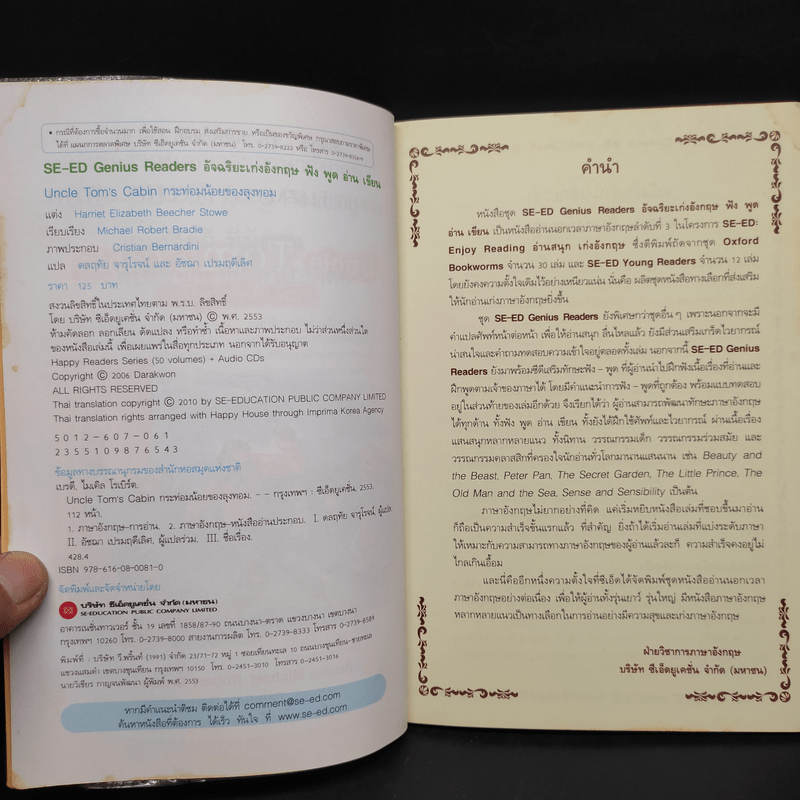 • กรณีที่ต้องการซื้อจำนวนมาก เพื่อใช้สอน ฝึกอบรม ส่งเสริมการขาย หรือเป็นของขวัญพิเศษ กรุณาสอบถามราคาพิเศษ
ได้ที่ แผนกการตลาดพิเศษ บริษัท ซีเอ็ดยูเคชั่น จำกัด (มหาชน) โทร. 0-2739-8222 หรือ โทรสาร 0-2739-8356-9
SE-ED Genius Readers อัจฉริยะเก่งอังกฤษ ฟัง พูด อ่าน เขียน
Uncle Tom's Cabin กระท่อมน้อยของลุงทอม
แต่ง Harriet Elizabeth Beecher Stowe
เรียบเรียง Michael Robert Bradie
ภาพประกอบ Cristian Bernardini
แปล ดลฤทัย จารุโรจน์ และ อัชฌา เปรมฤดีเลิศ
ราคา 125 บาท
สงวนลิขสิทธิ์ในประเทศไทยตาม พ.ร.บ. ลิขสิทธิ์
โดย บริษัท ซีเอ็ดยูเคชั่น จำกัด (มหาชน) © พ.ศ. 2553
ห้ามคัดลอก ลอกเลียน ดัดแปลง หรือทำซ้ำ เนื้อหาและภาพประกอบ ไม่ว่าส่วนหนึ่งส่วนใด
ของหนังสือเล่มนี้ เพื่อเผยแพร่ในสื่อทุกประเภท นอกจากได้รับอนุญาต
Happy Readers Series (50 volumes) + Audio CDs
Copyright © 2006 Darakwon
ALL RIGHTS RESERVED
Thai translation copyright © 2010 by SE-EDUCATION PUBLIC COMPANY LIMITED
Thai translation rights arranged with Happy House through Imprima Korea Agency
5012-607-061
23551098765 43
ข้อมูลทางบรรณานุกรมของสำนักหอสมุดแห่งชาติ
เบรดี, ไมเคิล โรเบิร์ต.
Uncle Tom's Cabin กระท่อมน้อยของลุงทอม. -- กรุงเทพฯ : ซีเอ็ดยูเคชั่น, 2553.
112 หน้า.
1. ภาษาอังกฤษ-การอ่าน. 2. ภาษาอังกฤษ-หนังสืออ่านประกอบ. I. ดลฤทัย จารุโรจน์, ผู้แปล.
II. อัชฌา เปรมฤดีเลิศ, ผู้แปลร่วม. III. ชื่อเรื่อง.
428.4
ISBN 978-616-08-0081-0
จัดพิมพ์และจัดจำหน่ายโดย
บริษัท ซีเอ็ดยูเคชั่น จำกัด (มหาชน)
SE-EDUCATION PUBLIC COMPANY LIMITED
อาคารเนชั่นทาวเวอร์ ชั้น 19 เลขที่ 1858/87-90 ถนนบางนา-ตราด แขวงบางนา เขตบางนา
กรุงเทพฯ 10260 โทร. 0-2739-8000 สายงานการผลิต โทร. 0-2739-8333 โทรสาร 0-2739-8589
พิมพ์ที่ : บริษัท วี.พริ้นท์ (1991) จำกัด 23/71-72 หมู่ 1 ซอยเทียนทะเล 10 ถนนบางขุนเทียน-ชายทะเล
แขวงแสมดำ เขตบางขุนเทียน กรุงเทพฯ 10150 โทร. 0-2451-3010 โทรสาร 0-2451-3016
นายวิเชียร กาญจนพัฒนา ผู้พิมพ์ พ.ศ. 2553
หากมีคำแนะนำติชม ติดต่อได้ที่ comment@se-ed.com
ค้นหาหนังสือที่ต้องการ ได้เร็ว ทันใจ ที่ www.se-ed.com
คำนำ
หนังสือชุด SE-ED Genius Readers อัจฉริยะเก่งอังกฤษ ฟัง พูด
อ่าน เขียน เป็นหนังสืออ่านนอกเวลาภาษาอังกฤษลำดับที่ 3 ในโครงการ SE-ED:
Enjoy Reading อ่านสนุก เก่งอังกฤษ ซึ่งตีพิมพ์ถัดจากชุด Oxford
Bookworms จำนวน 30 เล่ม และ SE-ED Young Readers จำนวน 12 เล่ม
โดยยังคงความตั้งใจเดิมไว้อย่างเหนียวแน่น นั่นคือ ผลิตชุดหนังสือทางเลือกที่ส่งเสริม
ให้นักอ่านเก่งภาษาอังกฤษยิ่งขึ้น
ชุด SE-ED Genius Readers ยังพิเศษกว่าชุดอื่นๆ เพราะนอกจากจะมี
คำแปลศัพท์หน้าต่อหน้า เพื่อให้อ่านสนุก ลื่นไหลแล้ว ยังมีส่วนเสริมเกร็ดไวยากรณ์
น่าสนใจและคำถามทดสอบความเข้าใจอยู่ตลอดทั้งเล่ม นอกจากนี้ SE-ED Genius
Readers ยังมาพร้อมซีดีเสริมทักษะฟัง - พูด ที่ผู้อ่านนำไปฝึกฟังเนื้อเรื่องที่อ่านและ
ฝึกพูดตามเจ้าของภาษาได้ โดยมีคำแนะนำการฟัง - พูดที่ถูกต้อง พร้อมแบบทดสอบ
อยู่ในส่วนท้ายของเล่มอีกด้วย จึงเรียกได้ว่า ผู้อ่านสามารถพัฒนาทักษะภาษาอังกฤษ
ได้ทุกด้าน ทั้งฟัง พูด อ่าน เขียน ทั้งยังได้ฝึกใช้ศัพท์และไวยากรณ์ ผ่านเนื้อเรื่อง
แสนสนุกหลากหลายแนว ทั้งนิทาน วรรณกรรมเด็ก วรรณกรรมร่วมสมัย และ
วรรณกรรมคลาสสิกที่ครองใจนักอ่านทั่วโลกมานานแสนนาน เช่น Beauty and
the Beast, Peter Pan, The Secret Garden, The Little Prince, The
Old Man and the Sea, Sense and Sensibility เป็นต้น
ภาษาอังกฤษไม่ยากอย่างที่คิด แค่เริ่มหยิบหนังสือเล่มที่ชอบขึ้นมาอ่าน
ก็ถือเป็นความสำเร็จขั้นแรกแล้ว ที่สำคัญ ยิ่งถ้าได้เริ่มอ่านเล่มที่แบ่งระดับภาษา
ให้เหมาะกับความสามารถทางภาษาอังกฤษของผู้อ่านแล้วละก็ ความสำเร็จคงอยู่ไม่
ไกลเกินเอื้อม
และนี่คืออีกหนึ่งความตั้งใจที่ซีเอ็ดได้จัดพิมพ์ชุดหนังสืออ่านนอกเวลา
ภาษาอังกฤษอย่างต่อเนื่อง เพื่อให้ผู้อ่านทั้งรุ่นเยาว์ รุ่นใหญ่ มีหนังสือภาษาอังกฤษ
หลากหลายแนวเป็นทางเลือกในการอ่านอย่างมีความสุขและเก่งภาษาอังกฤษ
ฝ่ายวิชาการภาษาอังกฤษ
บริษัท ซีเอ็ดยูเคชั่น จำกัด (มหาชน)